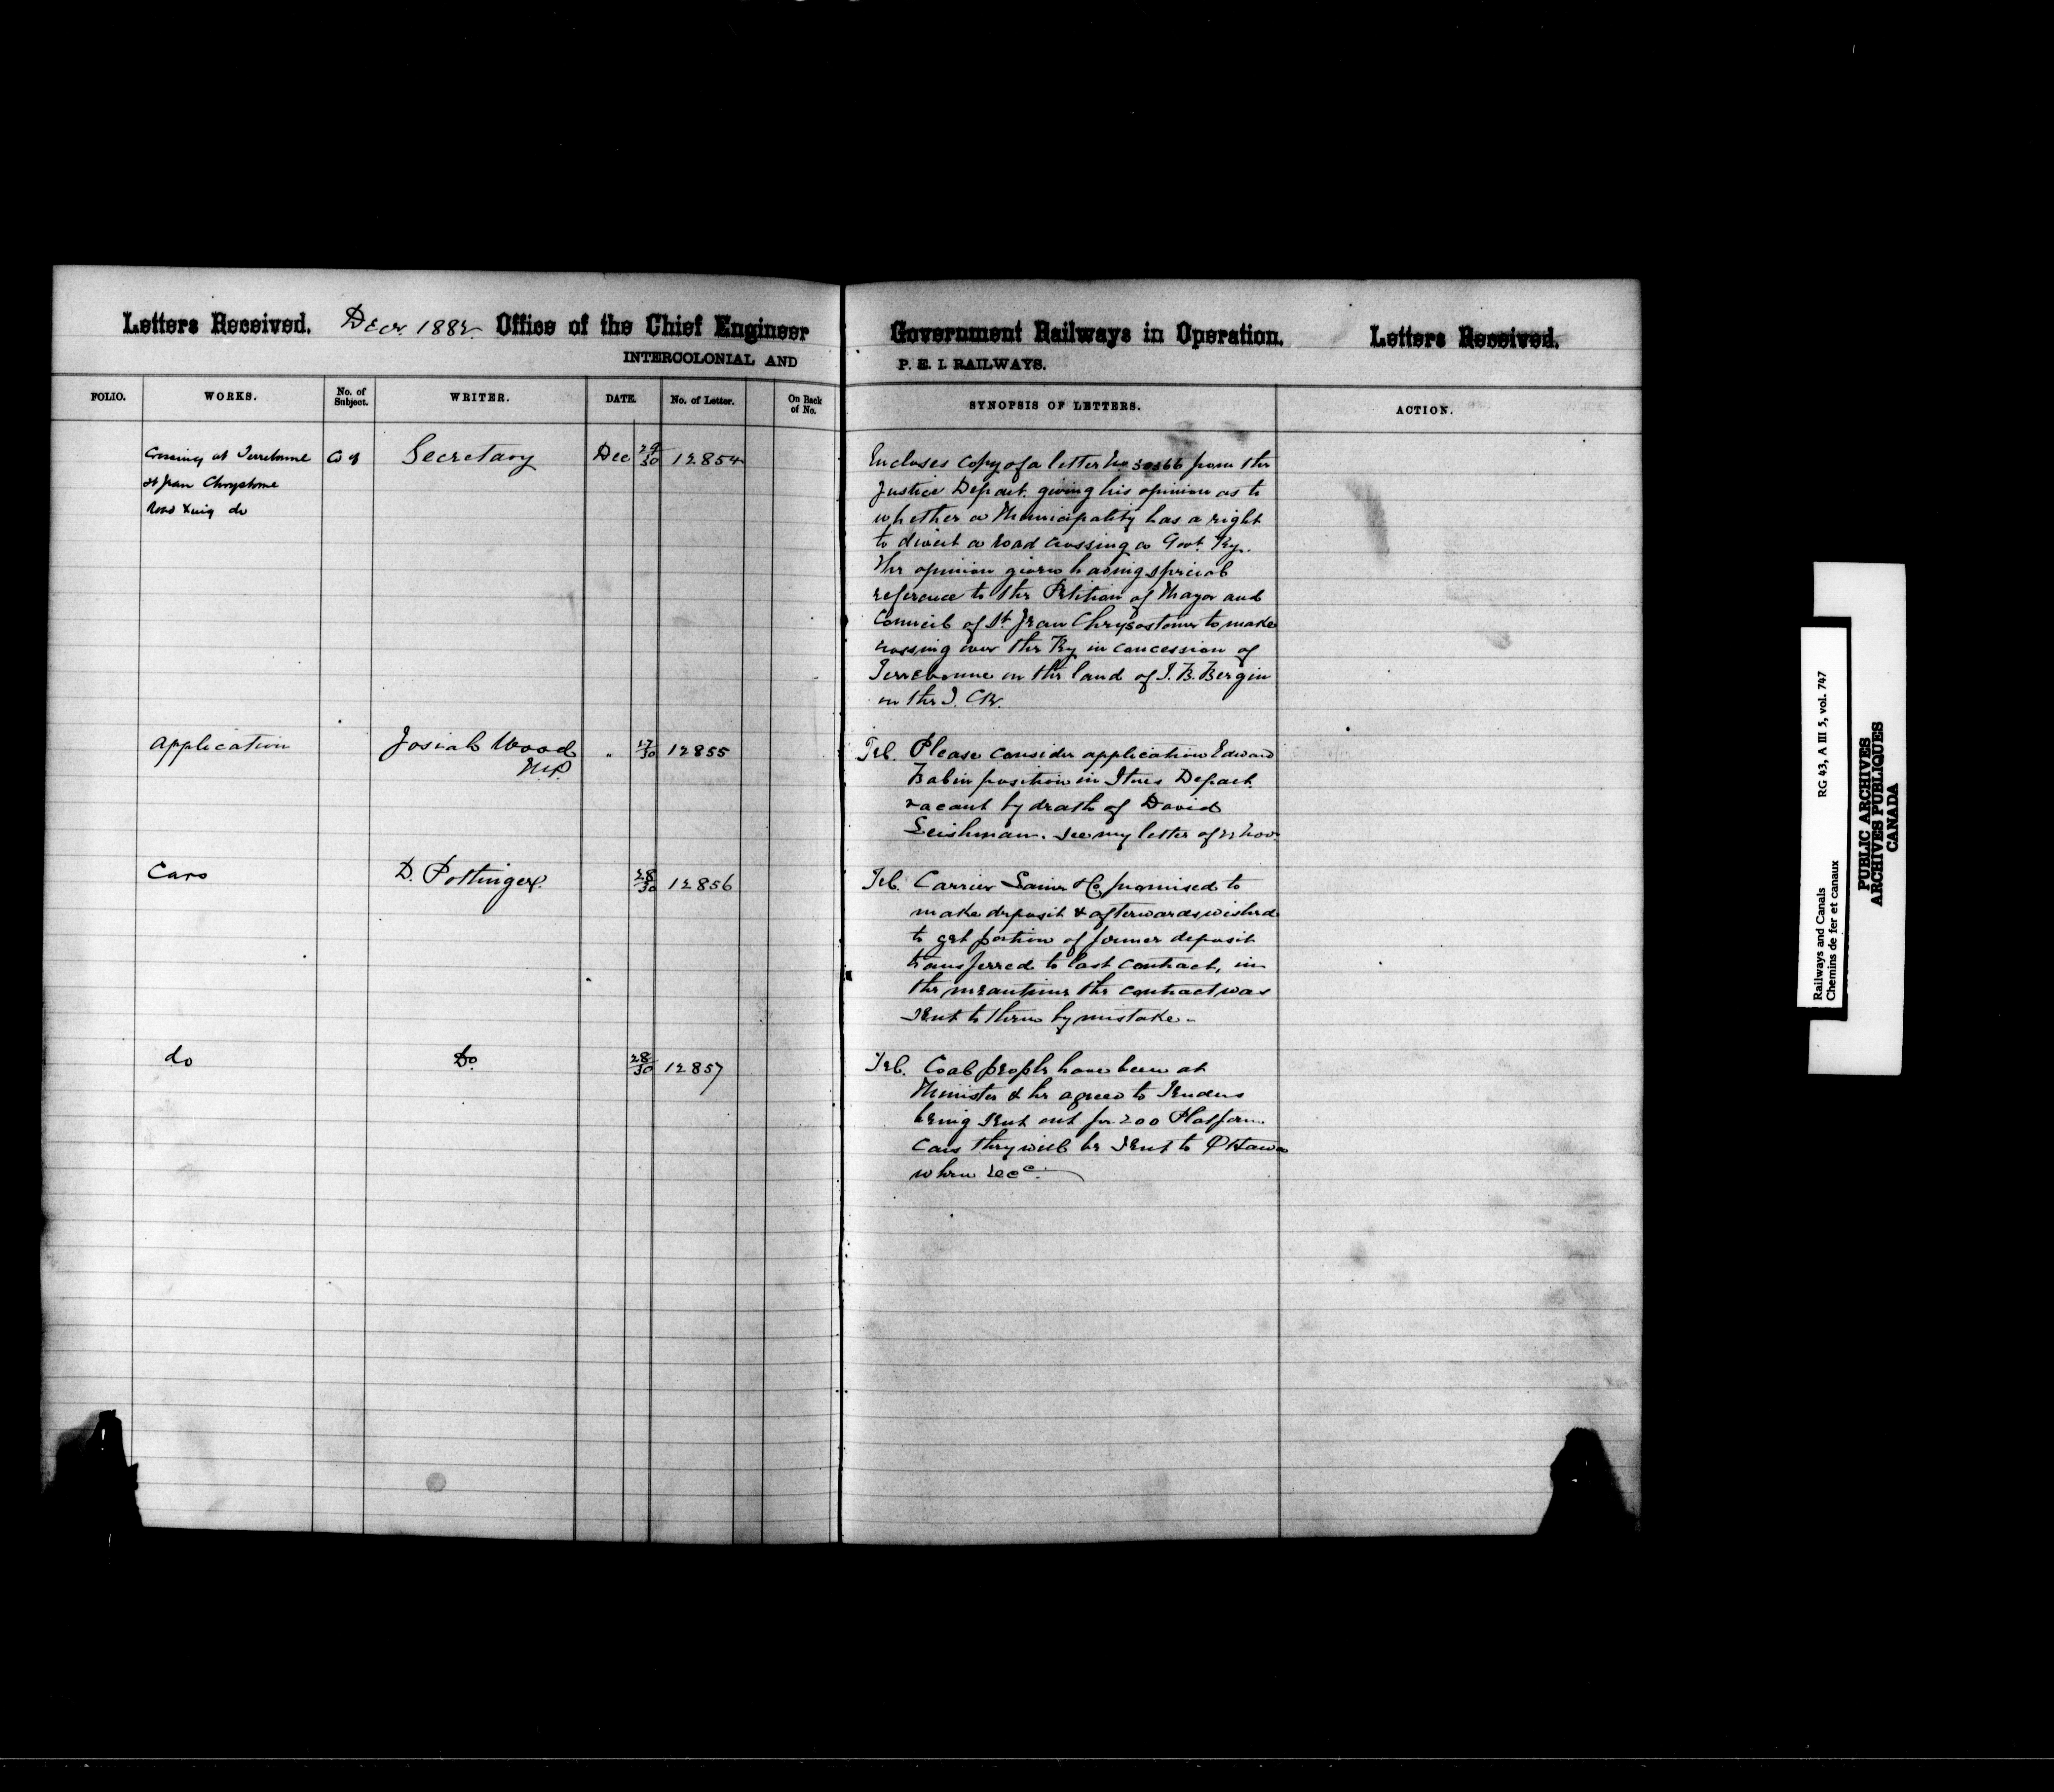 Letters Received. Decr. 1882 Office of the Chief Engineer
INTERCOLONIAL AND
Government Railways in Operation. Letters Received.
P. E. I. RAILWAYS.
FOLIO. WORKS. No. of Subject. WRITER. DATE. No. of Letter. On Back of No. SYNOPSIS OF LETTERS. ACTION.
Crossing at Terrebonne Secretary Dec 29/30 12854
St Jean Chrystome
Road Xing do
Encloses Copy of a letter No 30366 from the
Justice Depart. giving his opinion as to
whether a Municipality has a right
to divert a road crossing a Govt. Ry.
The opinion given having special
reference to the Petition of Mayor and
Council of St. Jean Chrysostome to make
crossing over the Ry in concession of
Terrebonne on the land of J. B. Bergin
on the I. CR.
Application Josiah Wood " 27/30 12855
M.P.
Tel. Please consider application Edward
Babin position in Stores Depart.
vacant by death of David
Leishman. See my letter of 22 Nov.
Cars D. Pottinger 28/30 12856
Tel. Carrier Laine & Co. promised to
make deposit & afterwards wished
to get portion of former deposit
transferred to last contract, in
the meantime the contract was
sent to them by mistake.
do Do. 28/30 12857
Tel. Coal people have been at
Minister & he agrees to Tenders
being sent out for 200 Platform
Cars they will be sent to Ottawa
when recd.
Railways and Canals RG 43, A III 5, vol. 747
Chemins de fer et canaux
PUBLIC ARCHIVES
ARCHIVES PUBLIQUES
CANADA